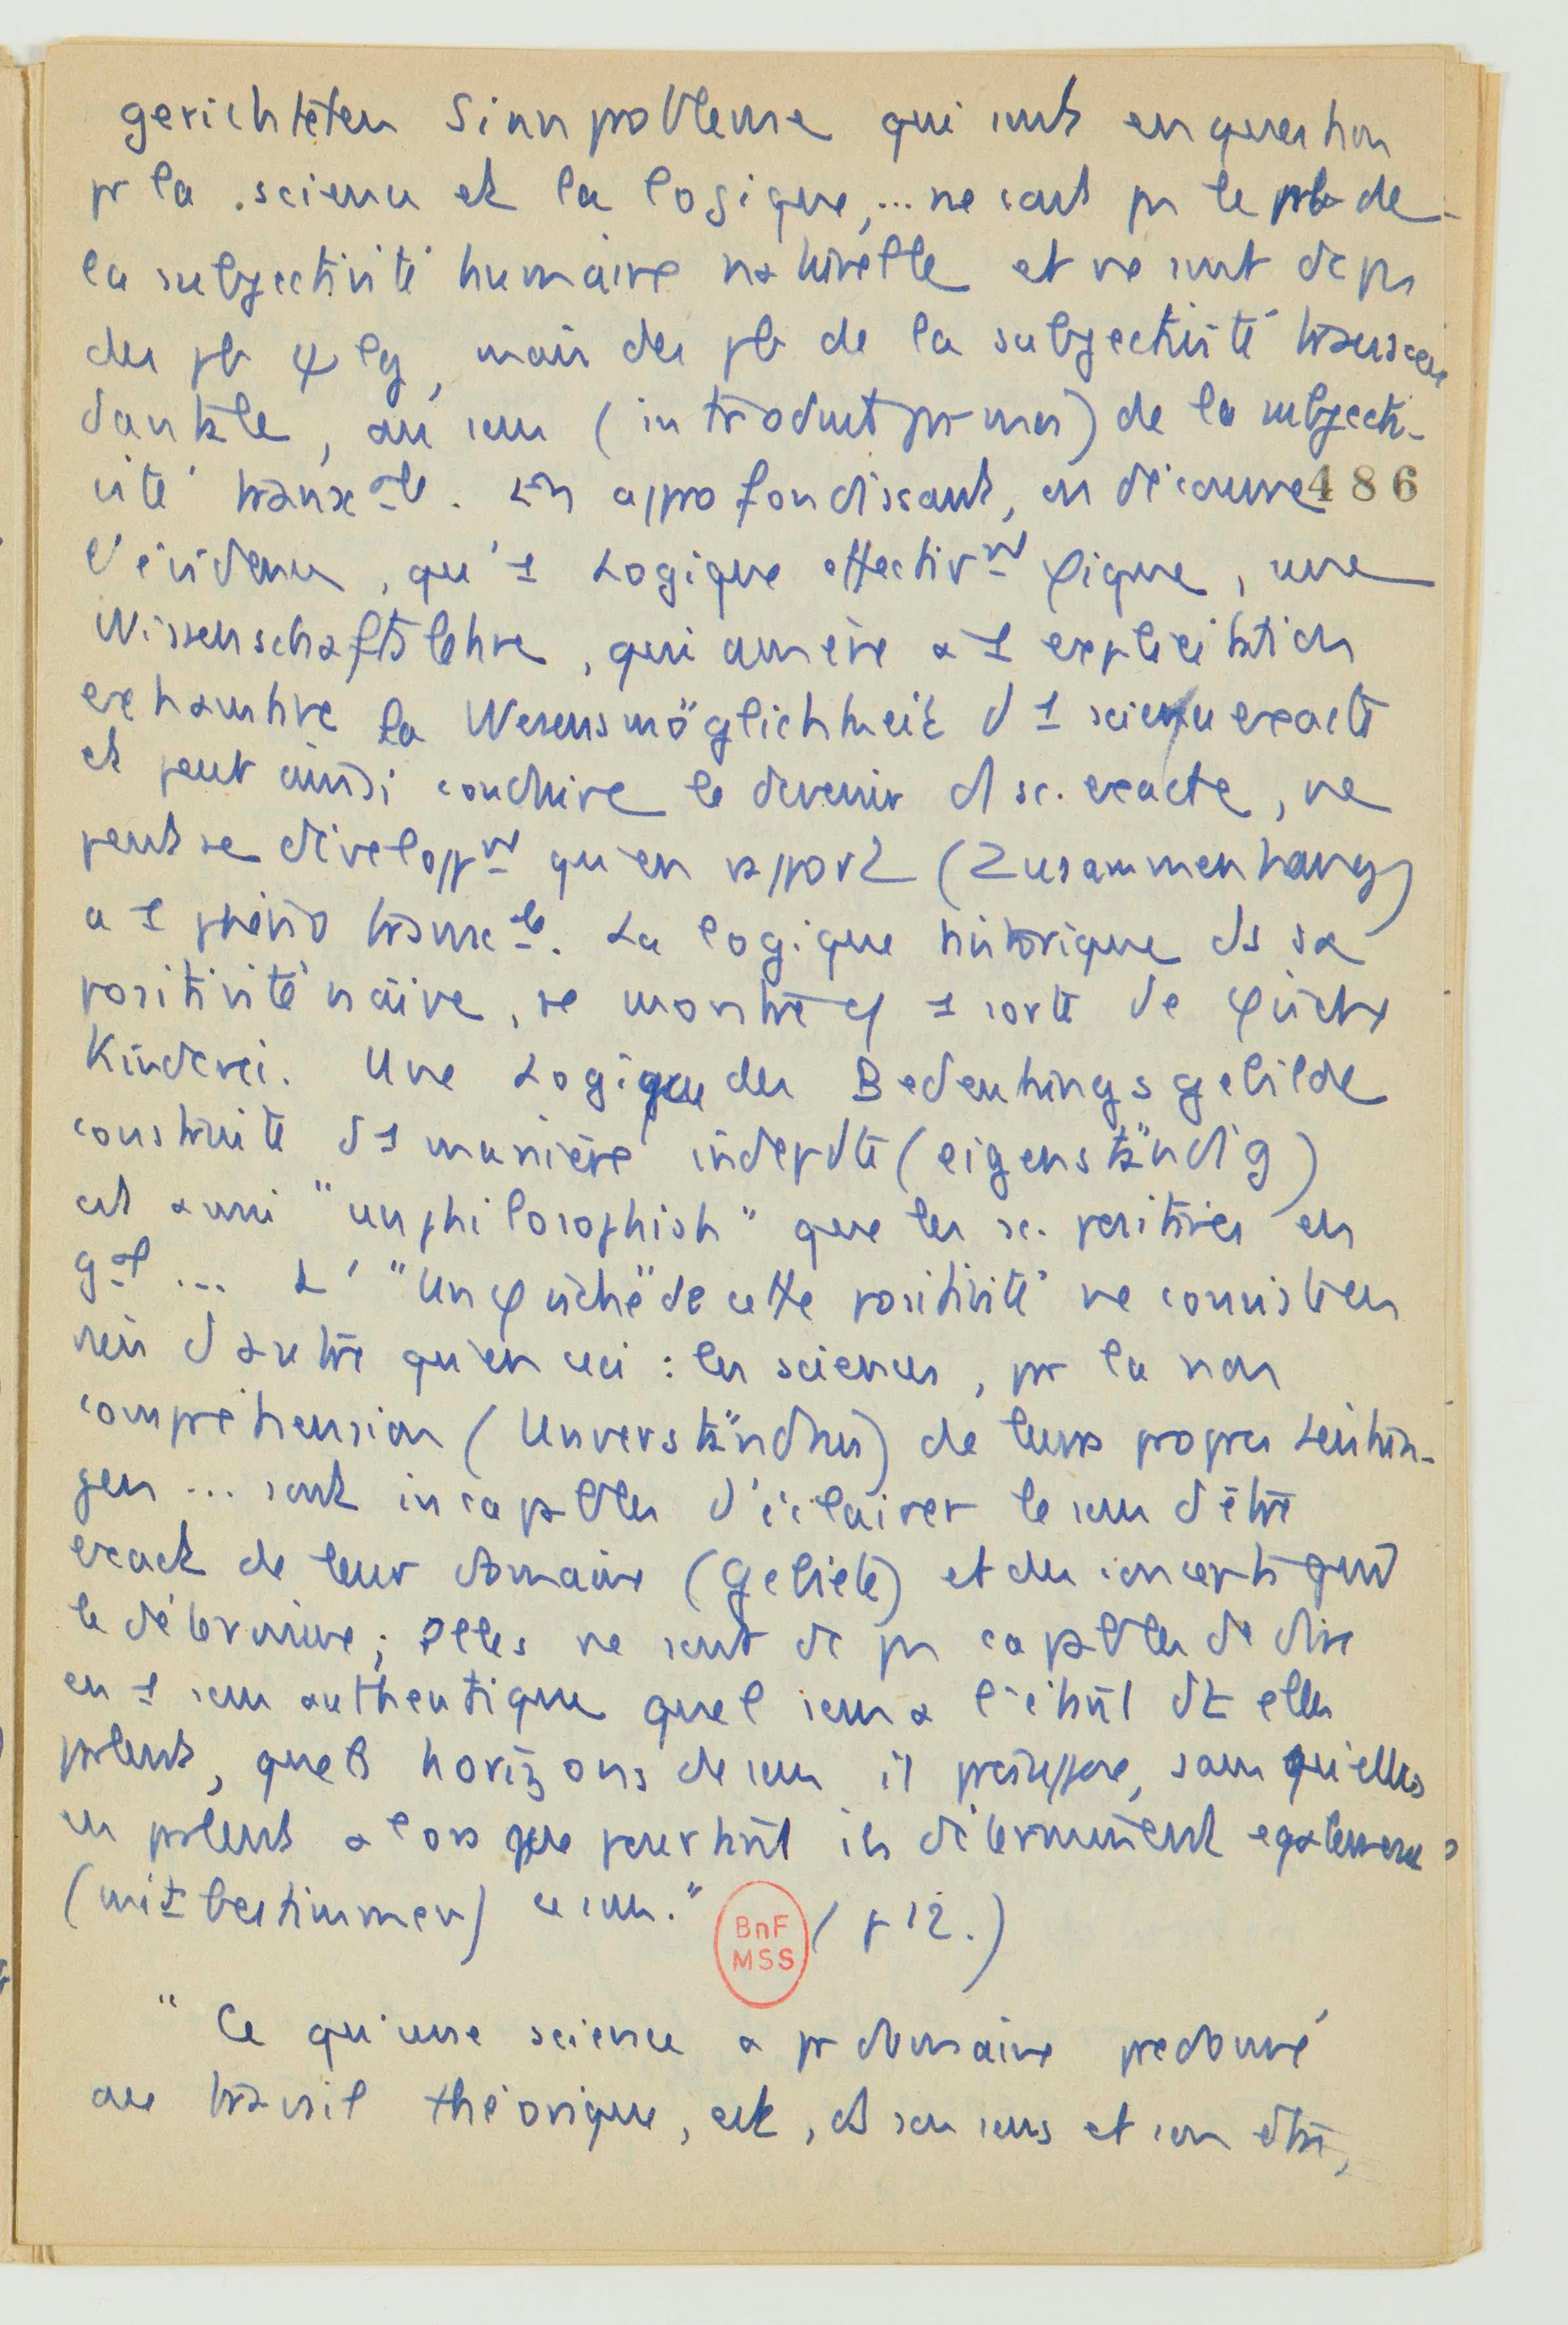 gerichteten Sinnprobleme qui sont en question
pr la science et la logique, ... ne sont pas le pb de
la subjectivité humaine naturelle et ne sont dc pas
des pb ψlg, mais des pb de la subjectivité transcen
dantale, au sens (introduit par moi) de la subjecti-
vité transc_le. En approfondissant, on découvre 486
l'évidence, qu'1 Logique effectivnt φique, une
Wissenschaftslehre, qui amène à 1 explicitation
exhaustive la Wesensmöglichkeit d'1 science exacte
et peut ainsi conduire le devenir d sc. exacte, ne
peut se développnt qu'en rapport (Zusammenhang)
à 1 phéno transc_le. La logique historique ds sa
positivité naïve, se montre cɥ 1 sorte de φische
Kinderei. Une Logique des Bedeutungsgebilde
construite d'1 manière indepdte (eigenständig)
est aussi "unphilosophish" que les sc. positives en
gal ... L' "Unφische" de cette positivité ne consiste en
rien d'autre qu'en ceci : les sciences, pr la non
compréhension (Unverständnis) de leurs propres Leistun-
gen ... sont incapables d'éclairer le sens d'être
exact de leur domaine (Gebiete) et des concepts qui
le détermine ; elles ne sont dc pas capables de dire
en 1 sens authentique quel sens a l'étant dt elles
parlent, quels horizons de sens il présuppose, sans qu'elles
en parlent alors que pourtant ils déterminent egalement
(mitbestimmen) ce sens." (p 12.)
BnF
MSS
" Ce qu'une science a pr domaine predonné
au travail théorique, est, ds son sens et son être,